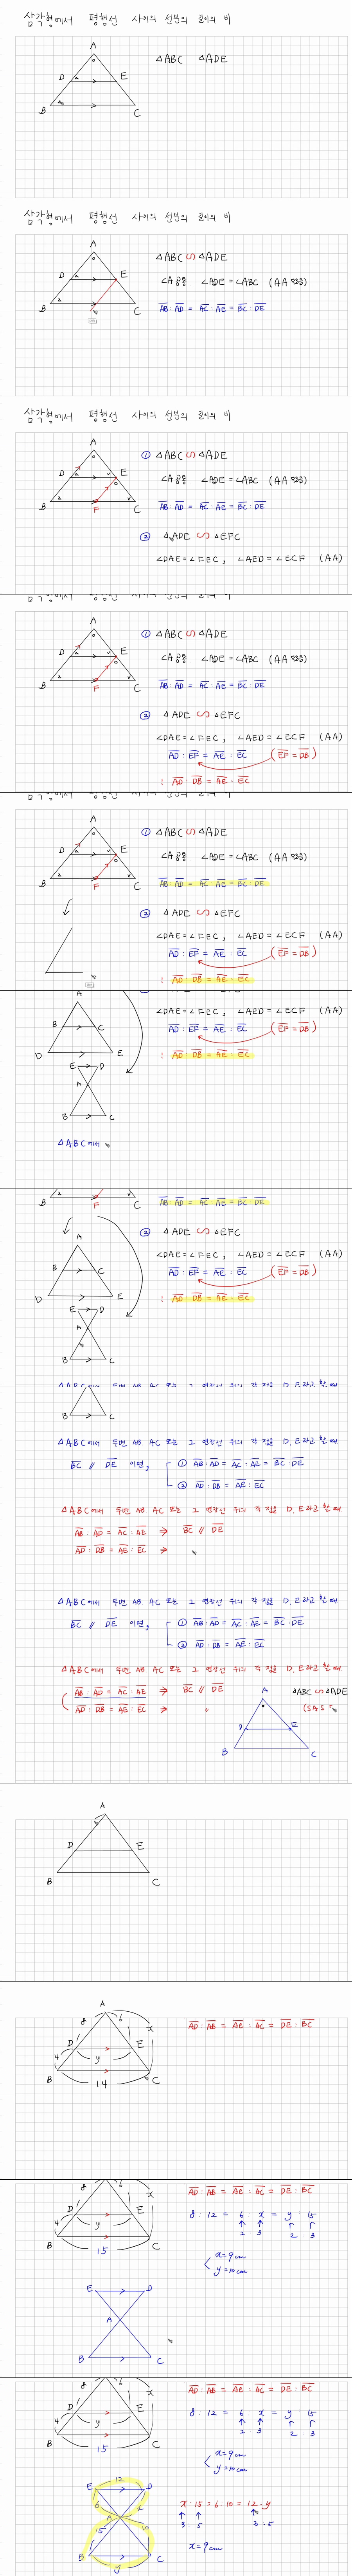 삼각형에서 평행선 사이의 선분의 길이의 비
A
△ABC △ADE
D E
B C
삼각형에서 평행선 사이의 선분의 길이의 비
A
△ABC ∽ △ADE
D E
∠A 공통 ∠ADE = ∠ABC (AA 닮음)
B C
AB : AD = AC : AE = BC : DE
삼각형에서 평행선 사이의 선분의 길이의 비
A
① △ABC ∽ △ADE
D E
∠A 공통 ∠ADE = ∠ABC (AA 닮음)
B F C
AB : AD = AC : AE = BC : DE
② △ADE ∽ △EFC
∠DAE = ∠FEC, ∠AED = ∠ECF (AA)
A
① △ABC ∽ △ADE
D E
∠A 공통 ∠ADE = ∠ABC (AA 닮음)
B F C
AB : AD = AC : AE = BC : DE
② △ADE ∽ △EFC
∠DAE = ∠FEC, ∠AED = ∠ECF (AA)
AD : EF = AE : EC (EF = DB)
: AD : DB = AE : EC
A
① △ABC ∽ △ADE
D E
∠A 공통 ∠ADE = ∠ABC (AA 닮음)
B F C
AB : AD = AC : AE = BC : DE
② △ADE ∽ △EFC
∠DAE = ∠FEC, ∠AED = ∠ECF (AA)
AD : EF = AE : EC (EF = DB)
: AD : DB = AE : EC
A
∠DAE = ∠FEC, ∠AED = ∠ECF (AA)
B C
AD : EF = AE : EC (EF = DB)
D E
: AD : DB = AE : EC
E D
A
B C
△ABC에서
B F C
AB : AD = AC : AE = BC : DE
② △ADE ∽ △EFC
A
∠DAE = ∠FEC, ∠AED = ∠ECF (AA)
B C
AD : EF = AE : EC (EF = DB)
D E
: AD : DB = AE : EC
E D
A
B C
△ABC에서 두변 AB AC 또는 그 연장선 위의 각 점을 D, E라고 할 때
B C
△ABC에서 두변 AB AC 또는 그 연장선 위의 각 점을 D, E라고 할 때
BC // DE 이면, ① AB : AD = AC : AE = BC : DE
② AD : DB = AE : EC
△ABC에서 두변 AB AC 또는 그 연장선 위의 각 점을 D, E라고 할 때
AB : AD = AC : AE ⇒ BC // DE
AD : DB = AE : EC ⇒
△ABC에서 두변 AB AC 또는 그 연장선 위의 각 점을 D, E라고 할 때
BC // DE 이면, ① AB : AD = AC : AE = BC : DE
② AD : DB = AE : EC
△ABC에서 두변 AB AC 또는 그 연장선 위의 각 점을 D, E라고 할 때
AB : AD = AC : AE ⇒ BC // DE
AD : DB = AE : EC ⇒ 〃
A △ABC ∽ △ADE
D E (SAS
B C
A
D E
B C
A
8 6 x
AD : AB = AE : AC = DE : BC
D E
4 y
B C
14
8 6 x
AD : AB = AE : AC = DE : BC
D E
4 y
8 : 12 = 6 : x = y : 15
B C
2 : 3 2 : 3
15
x = 9 cm
y = 10 cm
E D
A
B C
8 6 x
AD : AB = AE : AC = DE : BC
D E
4 y
8 : 12 = 6 : x = y : 15
B C
2 : 3 2 : 3
15
x = 9 cm
y = 10 cm
12
E D
6 x
A
x : 15 = 6 : 10 = 12 : y
15 10
3 : 5 3 : 5
B C
y
x = 9 cm